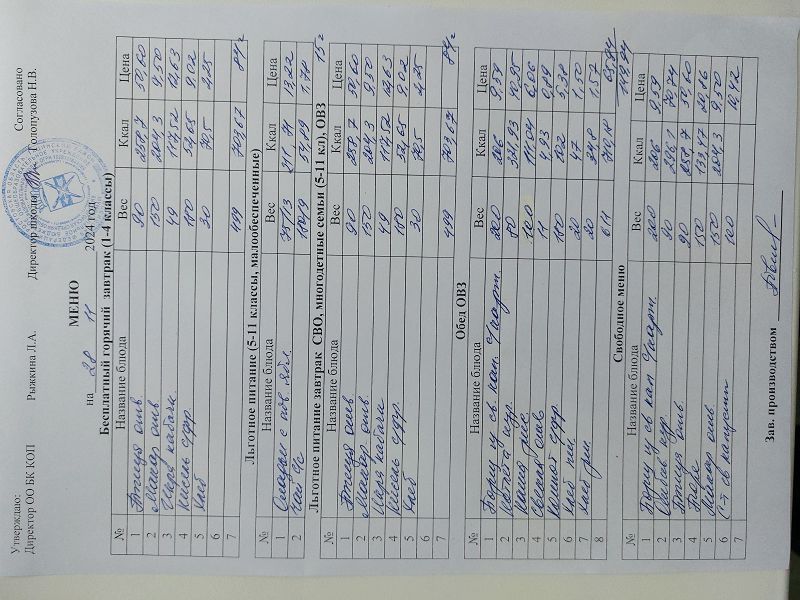 Утверждаю: Согласовано
Директор ОО БК КОП Рыжкина Л.А. Директор школы Голопузова Н.В.
МЕНЮ
на 28 11 2024 год.
Бесплатный горячий завтрак (1-4 классы)
№ Название блюда Вес Ккал Цена
1 Птица отв. 90 258,7 50,60
2 Макар отв 150 204,3 9,50
3 Икра кабачк. 49 117,52 12,63
4 Кисель с/фр. 180 52,65 9,02
5 Хлеб 30 70,5 2,25
6
7 499 703,67 84 г
Льготное питание (5-11 классы, малообеспеченные)
№ Название блюда Вес Ккал Цена
1 с пов ябл. 75/13 211,71 13,22
2 Чай с/с 180/9 54,09 1,78
15 г
Льготное питание завтрак СВО, многодетные семьи (5-11 кл), ОВЗ
№ Название блюда Вес Ккал Цена
1 Птица отв 90 258,7 50,60
2 Макар отв 150 204,3 9,50
3 Икра кабачк. 49 117,52 12,63
4 Кисель с/фр. 180 52,65 9,02
5 Хлеб 30 70,5 2,25
6
7 499 703,67 84 г
Обед ОВЗ
№ Название блюда Вес Ккал Цена
1 Борщ из св. кап. с/карт. 200 206 9,59
2 кур. 80
3 Каша рис. 111,04 6,06
4 Свекла отв. 11 4,93 0,89
5 Компот с/фр 180 102 5,38
6 Хлеб пш. 20 47 1,50
7 Хлеб рж. 20 34,8 1,57
8 611 710,10
Свободное меню
№ Название блюда Вес Ккал Цена
1 Борщ из св кап с/карт. 200 206 9,59
2 кур. 90
3 Птица отв 90 258,7 50,60
4 Пюре 150 133,47
5 Макар отв. 150 204,3 9,50
6 С-т св капусты 100 10,42
7
Зав. производством